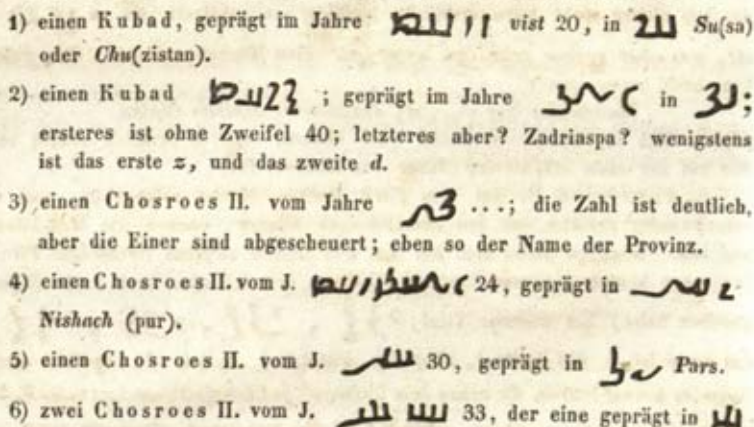 1) einen Kubad, geprägt im Jahre vist 20, in Su(sa)
oder Chu(zistan).
2) einen Kubad ; geprägt im Jahre in ;
ersteres ist ohne Zweifel 40; letzteres aber? Zadriaspa? wenigstens
ist das erste z, und das zweite d.
3) einen Chosroes II. vom Jahre ...; die Zahl ist deutlich,
aber die Einer sind abgescheuert; eben so der Name der Provinz.
4) einen Chosroes II. vom J. 24, geprägt in
Nishach (pur).
5) einen Chosroes II. vom J. 30, geprägt in Pars.
6) zwei Chosroes II. vom J. 33, der eine geprägt in